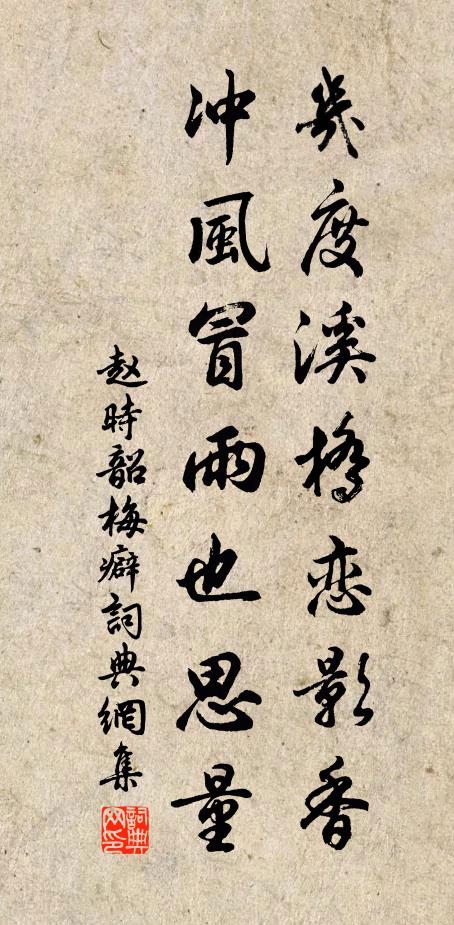 幾度溪橋恋影香
冲風冒雨也思量
赵時韶梅癖詞典網集
詞典网印